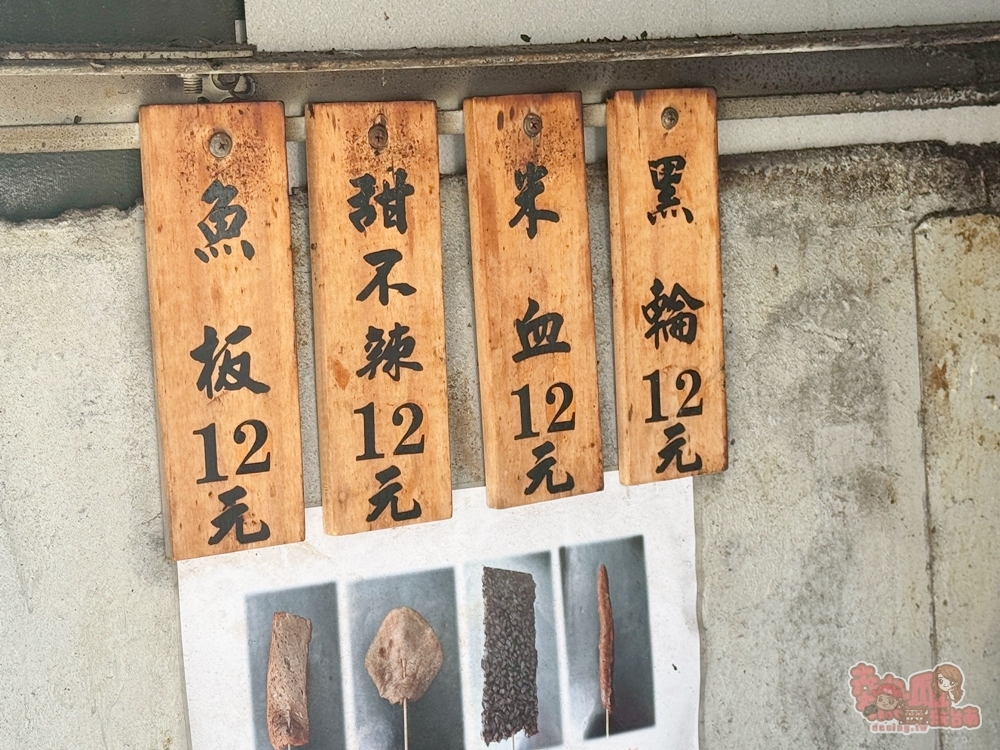 魚板12元
甜不辣12元
米血12元
黑輪12元